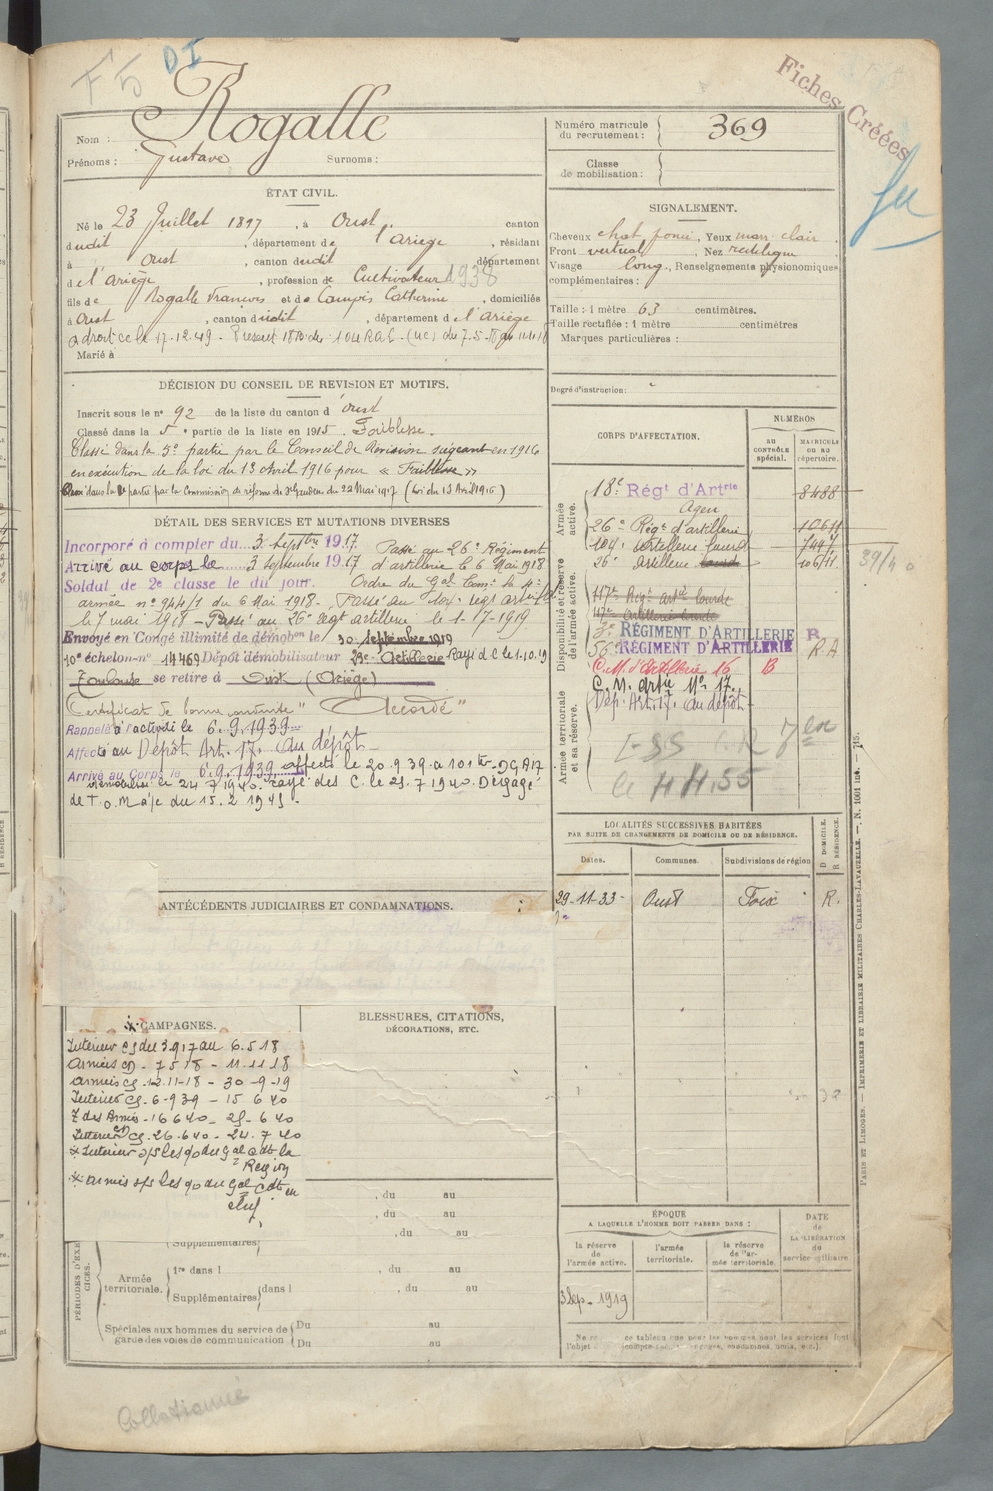 F5 DI
Fiches Créées
Nom : Rogalle
Prénoms : Gustave Surnoms :
Numéro matricule du recrutement : 369
Classe de mobilisation :
ÉTAT CIVIL.
Né le 23 Juillet 1897, à Oust, canton
dudit, département de l'Ariège, résidant
à Oust, canton dudit département
de l'Ariège, profession de Cultivateur 1938
fils de Rogalle François et de Campis Catherine, domiciliés
à Oust, canton dudit, département de l'Ariège
a droit ce le 17.12.49
Marié à
SIGNALEMENT.
Cheveux chat foncé, Yeux marr. clair
Front vertical, Nez rectiligne
Visage long, Renseignements physionomiques
complémentaires :
Taille : 1 mètre 63 centimètres.
Taille rectifiée : 1 mètre centimètres
Marques particulières :
Degré d'instruction :
DÉCISION DU CONSEIL DE REVISION ET MOTIFS.
Inscrit sous le n° 92 de la liste du canton d'Oust
Classé dans la 5e partie de la liste en 1915. Faiblesse.
Classé dans la 5e partie par le Conseil de Révision siégeant en 1916
en exécution de la loi du 13 Avril 1916 pour « Faiblesse »
dans la partie par la Commission de réforme de St Gaudens du 22 Mai 1917 (Loi du 13 Avril 1916)
DÉTAIL DES SERVICES ET MUTATIONS DIVERSES
Incorporé à compter du 3 Septbre 1917. Passé au 26e Régiment
Arrivé au corps le 3 Septembre 1917 d'artillerie le 6 Mai 1918
Soldat de 2e classe le du jour. Ordre du Gal Comt la 4e
armée n° 944/1 du 6 Mai 1918. Passé au 104e régt artie ld
le 7 mai 1918 - Passé au 26e régt artillerie le 1-17-1919
Envoyé en Congé illimité de démobon le 30 septembre 1919
10e échelon n° 14469 Dépôt démobilisateur 23e Artillerie Rayé d C le 1.10.19
Toulouse se retire à Oust (Ariège)
Certificat de bonne conduite "Accordé"
Rappelé à l'activité le 6.9.1939
Affecté au Dépôt Art. 17. Au dépôt
Arrivé au Corps le 6.9.1939 affecté le 20.9.39 a 101
démobilisé le 24 7 1940. rayé des C. le 25.7.1940. Dégagé
de T.O.M. à/c du 15.2.1945.
CORPS D'AFFECTATION.
NUMÉROS
au contrôle spécial.
MATRICULE ou au répertoire.
Armée active.
18e Régt d'Artrie 8488
Agen
26e Régt d'artillerie 10611
104e artillerie lourd 7447
26e artillerie lourde 10611
39/40
Disponibilité et réserve de l'armée active.
117e Régt artie lourde
117e Artillerie lourde
3e RÉGIMENT D'ARTILLERIE R
56e RÉGIMENT D'ARTILLERIE R.A
C.M. d'Artillerie 16 B
Armée territoriale et sa réserve.
C.M. Artie N° 17.
Dép. Art. 17. Au dépôt
LOCALITÉS SUCCESSIVES HABITÉES
PAR SUITE DE CHANGEMENTS DE DOMICILE OU DE RÉSIDENCE.
Dates. Communes. Subdivisions de région
D DOMICILE. R RÉSIDENCE.
29-11-33 Oust Foix R.
ANTÉCÉDENTS JUDICIAIRES ET CONDAMNATIONS.
CAMPAGNES.
Intérieur CS du 3.9.17 au 6.5.18
Armées CD - 7 5 18 - 11.11.18
Armées CS - 12.11-18 - 30-9-19
Intérieur CS. 6-9 39 - 15 6 40
Z des Armées - 16 6 40 - 25 - 6 40
Intérieur CS. 26.6 40 - 24.7 40
BLESSURES, CITATIONS,
DÉCORATIONS, ETC.
, du au
, du au
, du au
PÉRIODES D'EXERCICES.
Supplémentaires
Armée territoriale.
1re dans l , du au
Supplémentaires (dans l , du au
Spéciales aux hommes du service de garde des voies de communication
Du au
Du au
ÉPOQUE
A LAQUELLE L'HOMME DOIT PASSER DANS :
la réserve de l'armée active.
l'armée territoriale.
la réserve de l'armée territoriale.
DATE de LA LIBÉRATION du service militaire.
3 Sep. 1919
PARIS ET LIMOGES. — IMPRIMERIE ET LIBRAIRIE MILITAIRES CHARLES-LAVAUZELLE.
Collationné